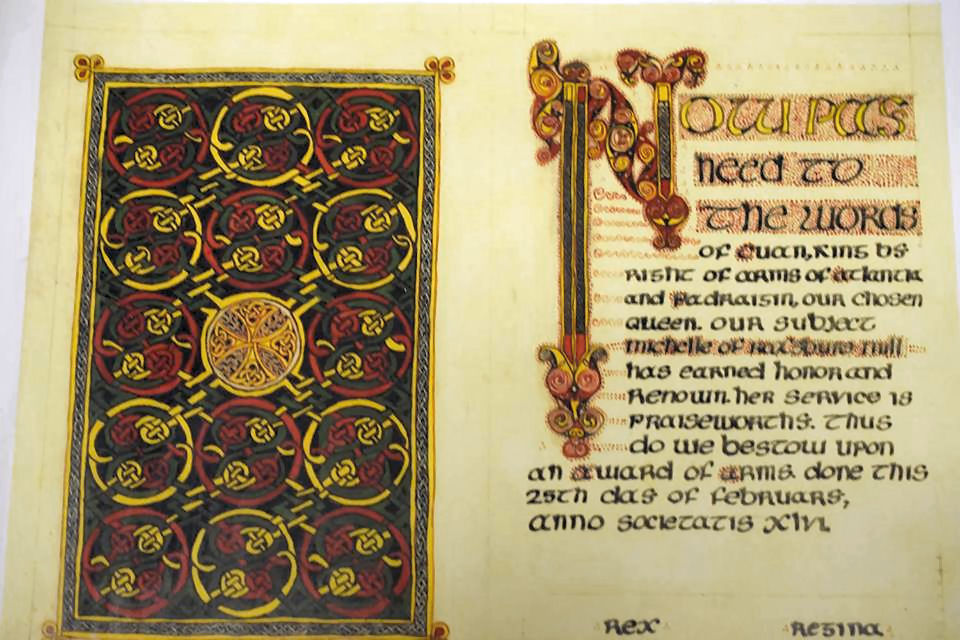 Now pay
heed to
the words
of Cuan, King by
right of arms of Atlantia
and Padraigin, our chosen
queen. Our subject
Michelle of Mill
has earned honor and
renown. Her service is
praiseworthy. Thus
do we bestow upon
an award of arms. Done this
25th day of February,
anno societatis XLVI.
Rex Regina